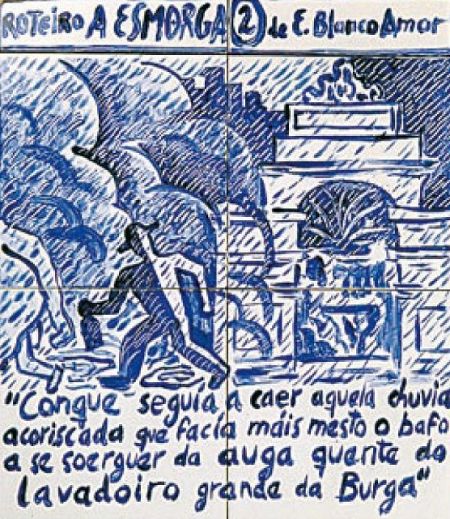 ROTEIRO A ESMORGA 2 de E. Blanco Amor
"Conque seguía a caer aquela chuvia
acoriscada que facía máis mesto o bafo
a se soerguer da auga quente do
lavadoiro grande da Burga"